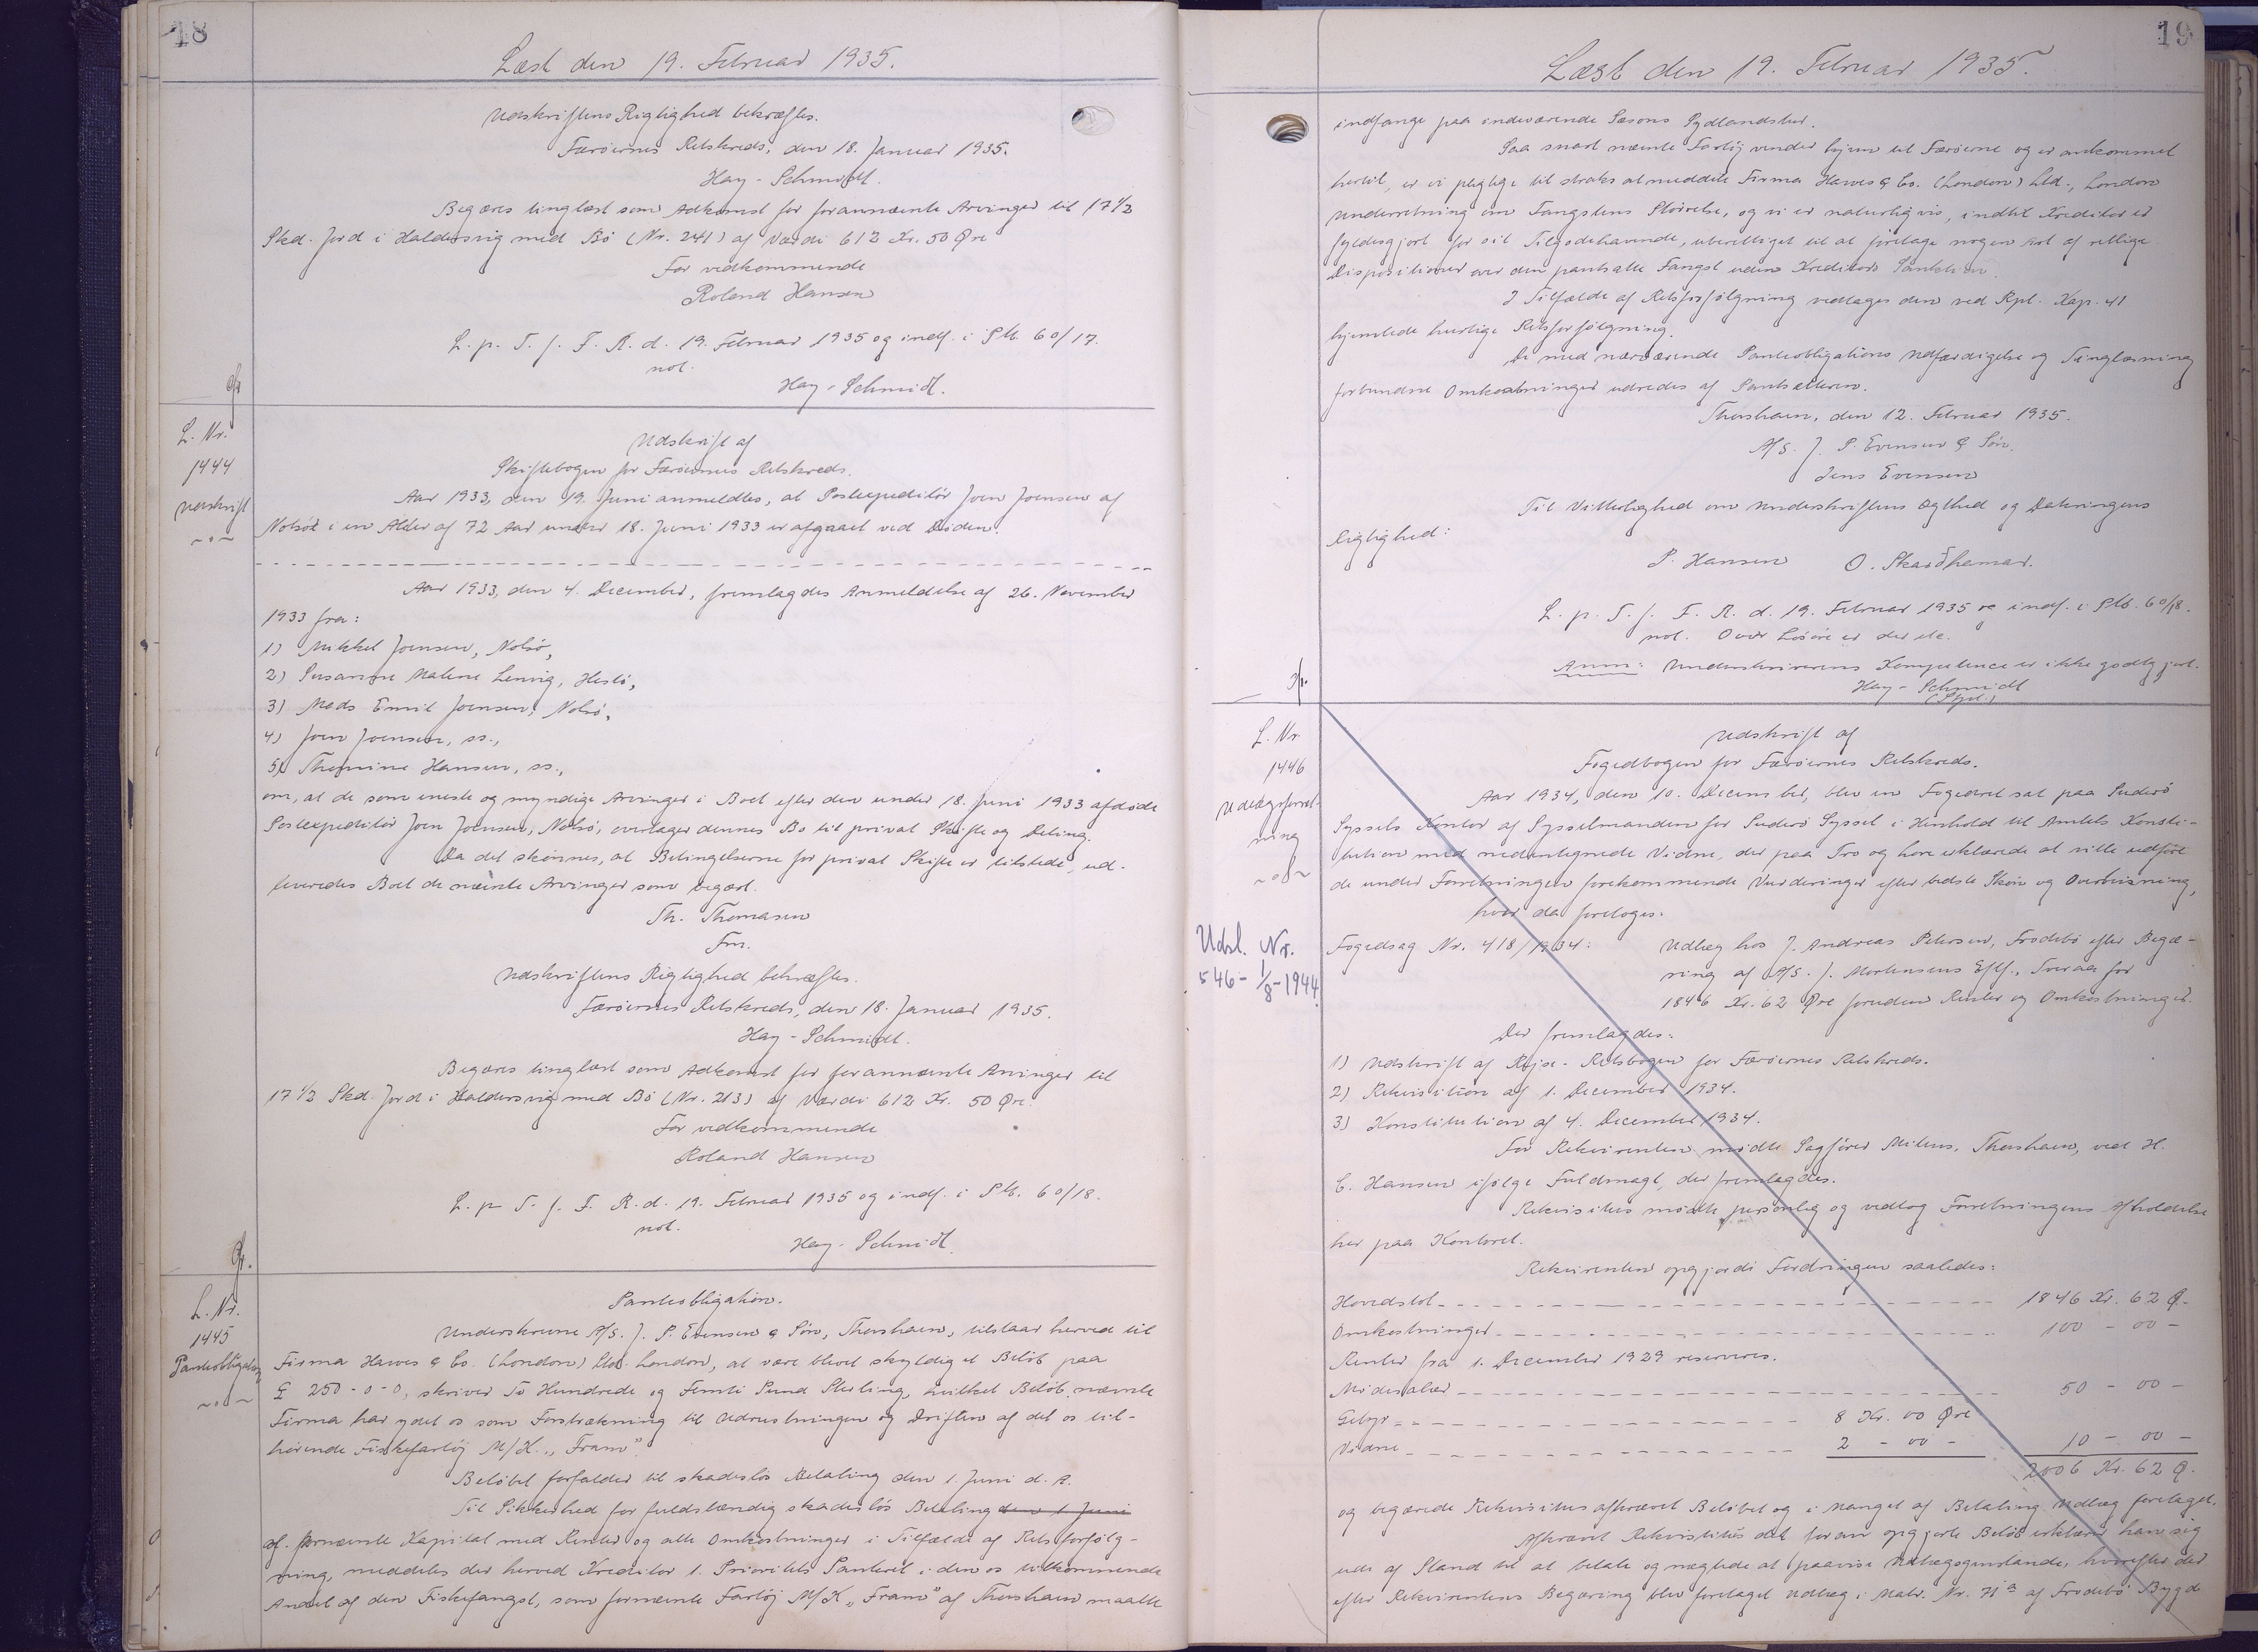 18
Læst den 19. Februar 1935.
Udskriftens Rigtighed bekræftes.
Færöernes Retskreds, den 18. Januar 1935.
Hay-Schmidt.
Begæres tinglæst som Adkomst for forannævnte Arvinger til 17 1/2
Skd. Jord i Haldersvig med Bö (Nr. 241) af Værdi 612 Kr. 50 Øre
For vedkommende
Roland Hansen
L. p. T. f. F. R. d. 19. Februar 1935 og indf. i S.Pb. 60/17.
not.
Hay-Schmidt.
L. Nr.
1444
Udskrift
~o~
Udskrift af
Skiftebogen for Færöernes Retskreds.
Aar 1933, den 19. Juni anmeldtes, at Postexpeditör Joen Joensen af
Nolsö i en Alder af 72 Aar under 18. Juni 1933 er afgaaet ved Döden.
Aar 1933, den 4. December, fremlagdes Anmeldelse af 26. November
1933 fra:
1) Mikkel Joensen, Nolsö,
2) Susanne Malene Lenvig, Hestö,
3) Mads Emil Joensen, Nolsö,
4) Joen Joensen, ss.,
5) Thomine Hansen, ss.,
om, at de som eneste og myndige Arvinger i Boet efter den under 18. Juni 1933 afdöde
Postexpeditör Joen Joensen, Nolsö, overtager dennes Bo til privat Skifte og Deling.
Da det skönnes, at Betingelserne for privat Skifte er tilstede, ud-
leveredes Boet de nævnte Arvinger som begært.
Th. Thomasen
Fm.
Udskriftens Rigtighed bekræftes.
Færöernes Retskreds, den 18. Januar 1935.
Hay-Schmidt.
Begæres tinglæst som Adkomst for forannævnte Arvinger til
17 1/2 Skd. Jord i Haldersvig med Bö (Nr. 213) af Værdi 612 Kr. 50 Øre.
For vedkommende
Roland Hansen
L. p. T. f. F. R. d. 19. Februar 1935 og indf. i S.Pb. 60/18.
not.
Hay-Schmidt.
L. Nr.
1445
Panteobligation
~o~
Panteobligation.
Underskrevne A/S. J. P. Evensen & Sön, Thorshavn, tilstaar herved til
Firma Hawes & Co. (London) Ltd. London, at være blevet skyldig et Belöb paa
£ 250-0-0, skriver To Hundrede og Femti Pund Sterling, hvilket Belöb nævnte
Firma har ydet os som Forstrækning til Udrustningen og Driften af det os til-
hörende Fiskefartöj M/K. „Fram”.
Belöbet forfalder til skadeslös Betaling den 1. Juni d. A.
Til Sikkerhed for fuldstændig skadeslös Betaling den 1 Juni
af fornævnte Kapital med Renter og alle Omkostninger i Tilfælde af Retsforfölg-
ning, meddeles der herved Kreditor 1. Prioritets Panteret i den os tilkommende
Andel af den Fiskefangst, som fornævnte Fartöj M/K „Fram” af Thorshavn maatte
19
Læst den 19. Februar 1935.
indfange paa indeværende Sæsons Sydlandstur.
Saa snart nævnte Fartöj vender hjem til Færöerne og er ankommet
hertil, er vi pligtige til straks at meddele Firma Hawes & Co. (London) Ltd., London
Underretning om Fangstens Störrelse, og vi er naturligvis, indtil Kreditor er
fyldesgjort for sit Tilgodehavende, uberettiget til at foretage nogen Art af retlige
Dispositioner over den pantsatte Fangst uden Kreditors Sanktion.
I Tilfælde af Retsforfölgning vedtages den ved Rpl. Kap. 41
hjemlede hurtige Retsforfölgning.
De med nærværende Panteobligations Udfærdigelse og Tinglæsning
forbundne Omkostninger udredes af Pantsætteren.
Thorshavn, den 12. Februar 1935.
A/S. J. P. Evensen & Sön.
Jens Evensen
Til Vitterlighed om Underskriftens Ægthed og Dateringens
Rigtighed:
P. Hansen O. Skarðhamar.
L. p. T. f. F. R. d. 19. Februar 1935 og indf. i S.Pb. 60/18.
not. Over Lösöre er der ik.
Anm: Underskriverens Kompetence er ikke godtgjort.
Hay-Schmidt
L. Nr.
1446
Udlægsforret-
ning
~o~
Udsl. Nr.
546-1/8-1944
Udskrift af
Fogedbogen for Færöernes Retskreds.
Aar 1934, den 10. December, blev en Fogedret sat paa Suderö
Syssels Kontor af Sysselmanden for Suderö Syssel i Henhold til Amtets Konsti-
tution med nedentegnede Vidne, der paa Tro og Love erklærede at ville udföre
de under Forretningen forekommende Vurderinger efter bedste Skön og Overbevisning,
hvor da foretoges:
Fogedsag Nr. 418/1934: Udlæg hos J. Andreas Petersen, Frodebö efter Begæ-
ring af A/S. J. Mortensens Eftf., Tveraa for
1846 Kr. 62 Øre foruden Renter og Omkostninger.
Der fremlagdes:
1) Udskrift af Rejse-Retsbogen for Færöernes Retskreds.
2) Rekvisition af 1. December 1934.
3) Konstitution af 4. December 1934.
For Rekvirenten mödte Sagförer Mitens, Thorshavn, ved H.
C. Hansen ifölge Fuldmagt, der fremlagdes.
Rekvisitus mödte personlig og vedtog Forretningens Afholdelse
her paa Kontoret.
Rekvirenten opgjorde Fordringen saaledes:
Hovedstol 1846 Kr. 62 Ø.
Omkostninger 100 - 00 -
Renter fra 1. December 1929 reserveres.
Mödesalær 50 - 00 -
Gebyr 8 Kr. 00 Øre
Vidne 2 - 00 - 10 - 00 -
2006 Kr. 62 Ø.
og begærede Rekvisitus afkrævet Belöbet og i Mangel af Betaling Udlæg foretaget.
Afkrævet Rekvisitus det foran opgjorte Belöb erklærer han sig
ude af Stand til at betale og nægtede at paavise Udlægsgenstande, hvorefter der
efter Rekvirentens Begæring blev foretaget Udlæg i Matr. Nr. 71a af Frodebö Bygd